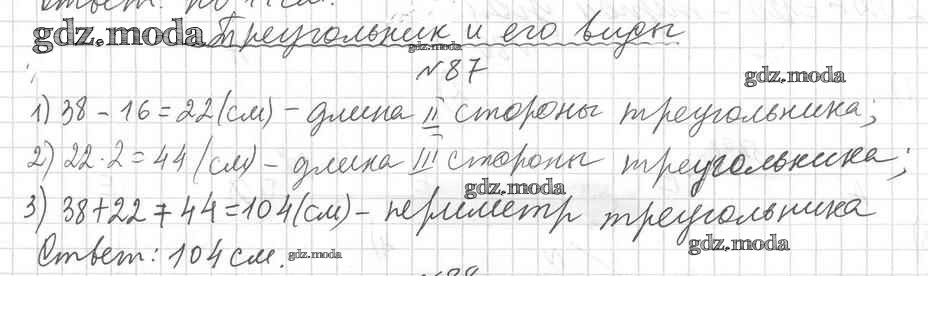 Ответ: по 11 см.
gdz.moda Треугольник и его виды
gdz.moda
№87
gdz.moda
1) 38 - 16 = 22 (см) - длина II стороны треугольника;
2) 22 · 2 = 44 (см) - длина III стороны треугольника;
gdz.moda
3) 38 + 22 + 44 = 104 (см) - периметр треугольника
gdz.moda
Ответ: 104 см. gdz.moda